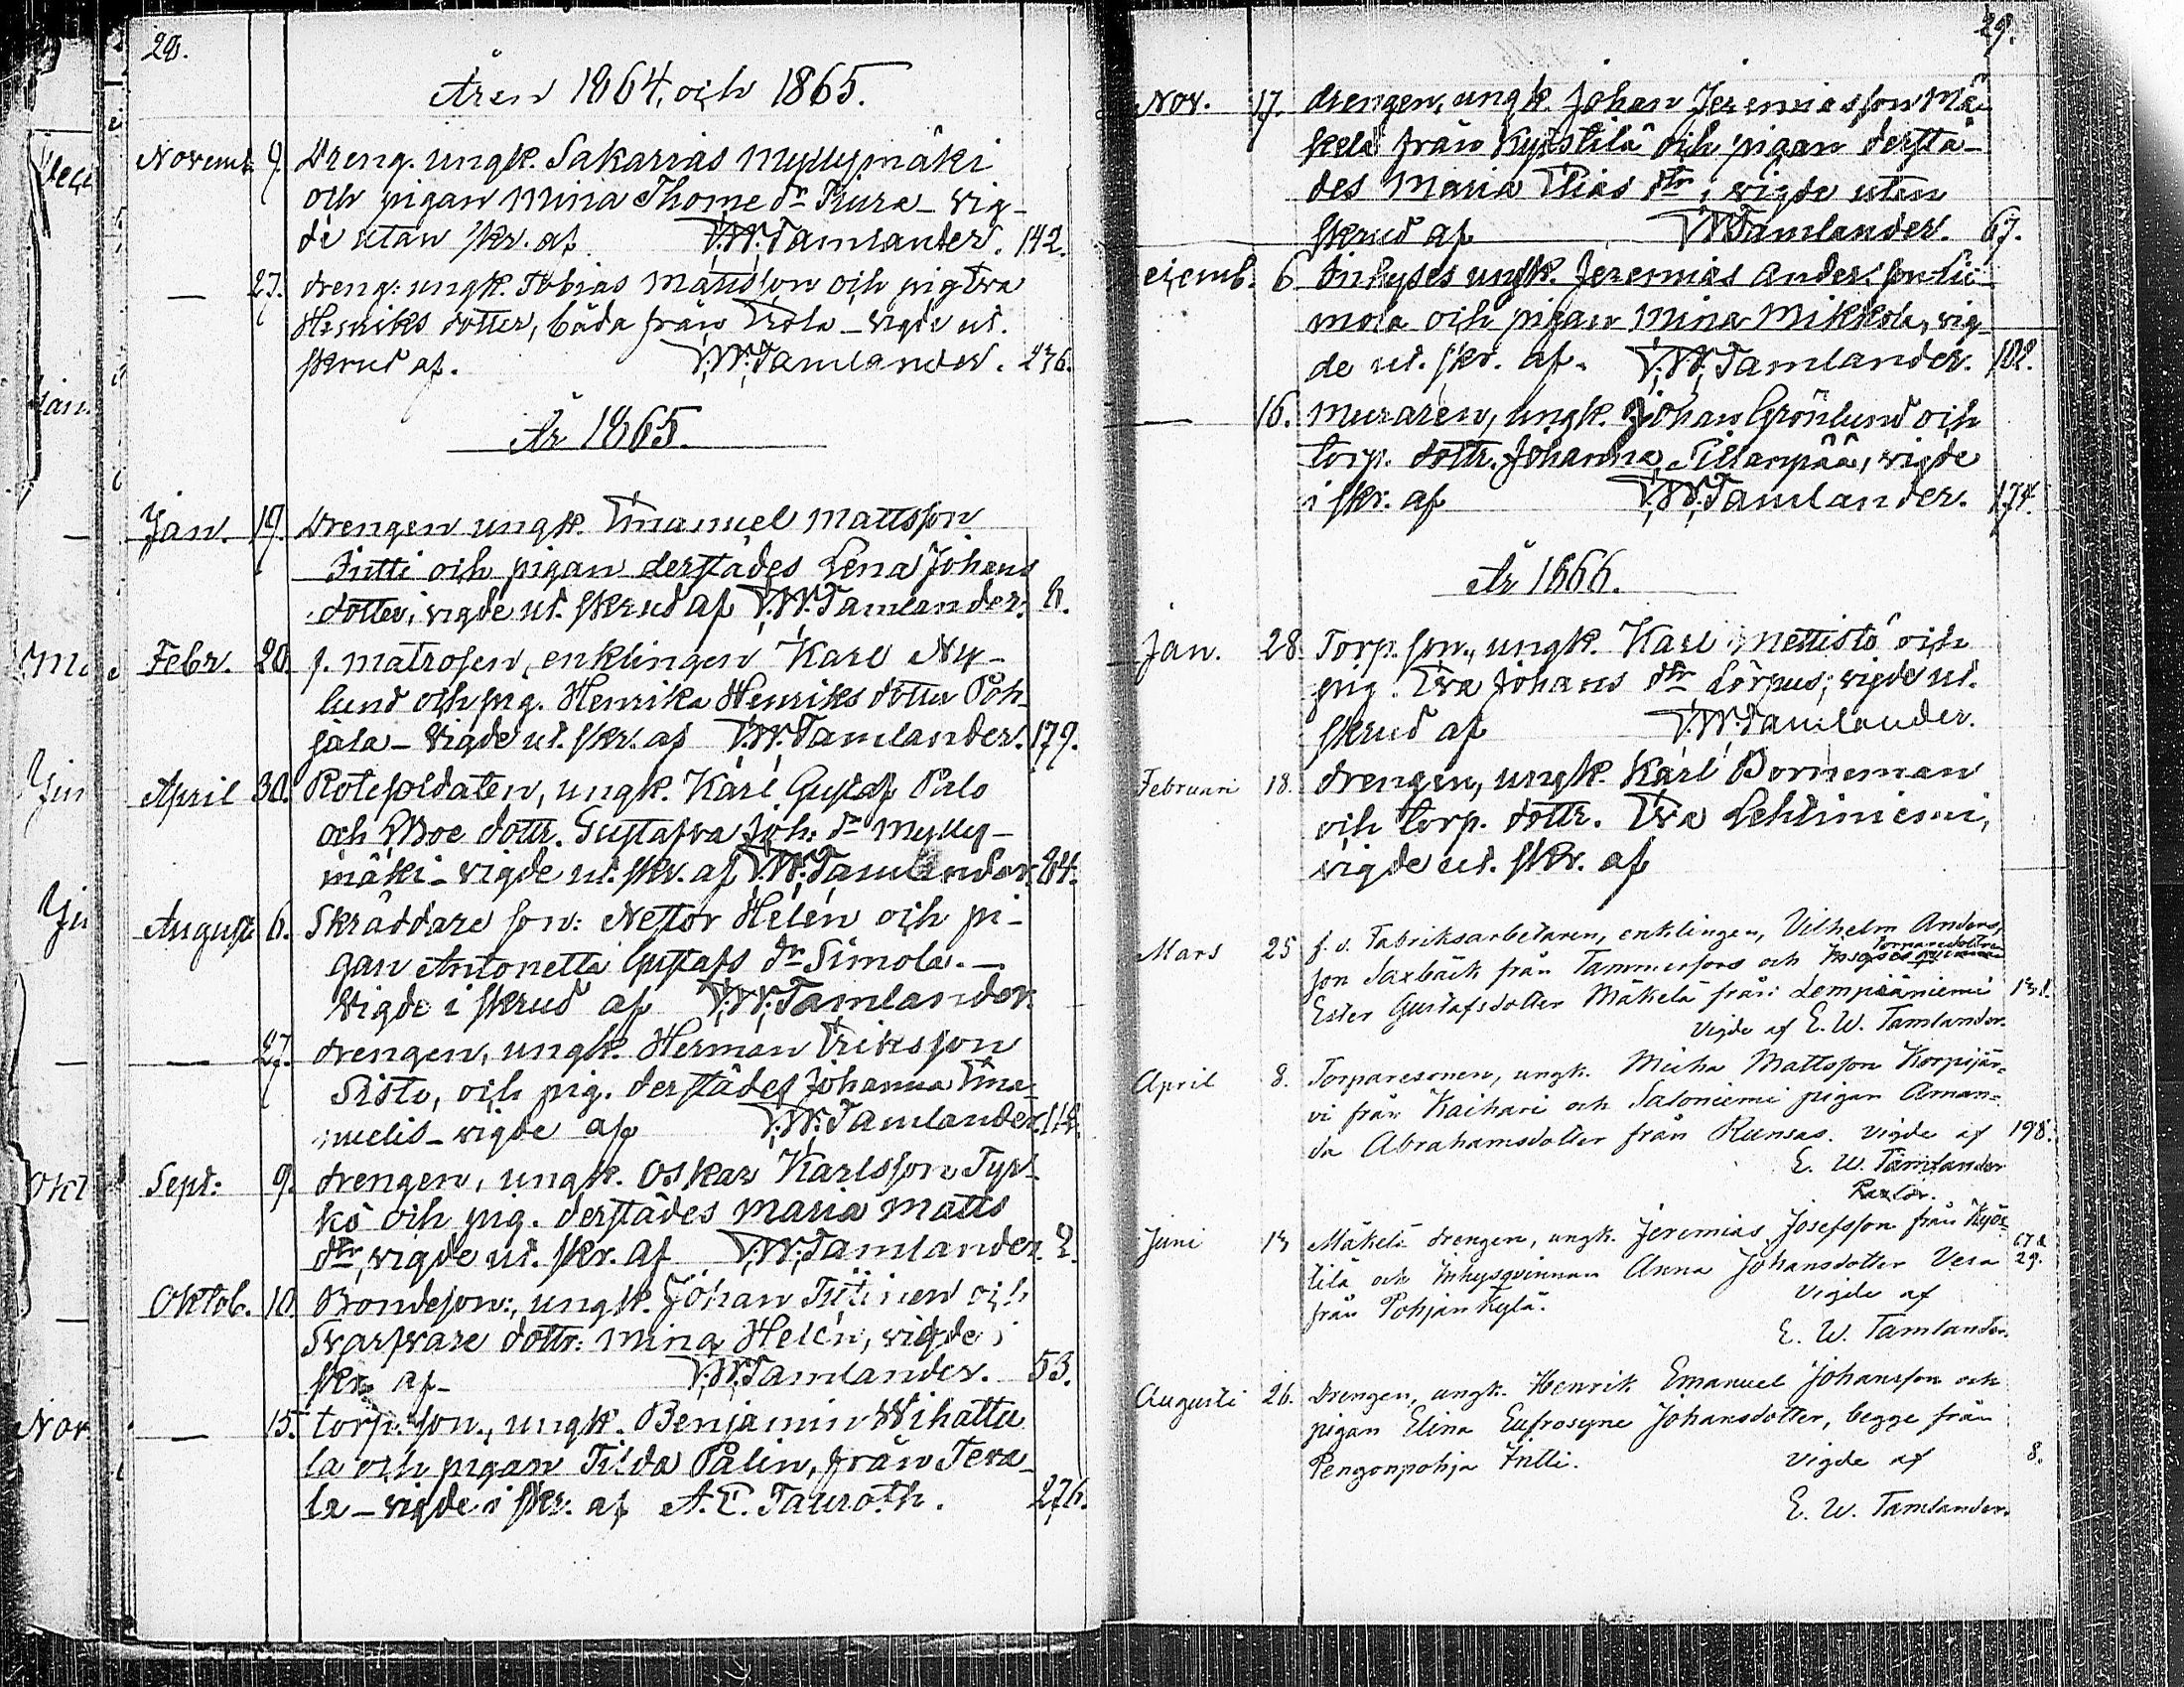 28.
Åren 1864, och 1865.
Novemb. 9. Dreng. ungk. Sakarias Myllymäki
och pigan Mina Thome dr Piura – vig-
de utan skr. af V.W. Tamlander. 142.
— 27. dreng: ungk. Tobias Mattsson och pig Eva
Henriks dotter, båda från Erola – vigde ut.
skrud af. V.W. Tamlander. 236.
År 1865.
Jan. 19. Drengen ungk. Emanuel Mattsson
Intti och pigan derstädes Lena Johans
dotter, vigde ut. skrud af V.W. Tamlander. 8.
Febr. 20. f. matrosen, enklingen Karl Ny-
lund och pig. Henrika Henriks dotter Poh-
jala – vigde ut. skr. af V.W. Tamlander. 179.
April 30. Rotesoldaten, ungk. Karl Gustaf Palo
och dottr. Gustafva Joh. dr Mylly-
mäki – vigde ut. skr. af V.W. Tamlander. 84.
August 6. Skräddare son: Nestor Helén och pi-
gan Antonetta Gustafs dr Simola. —
Vigde i skrud af V.W. Tamlander.
— 27. drengen, ungk. Herman Eriksson
Sisto, och pig. derstädes Johanna Ema-
nuelis – vigde af V.W. Tamlander. 114.
Sept: 9. drengen, ungk. Oskar Karlsson Typ-
kö och pig. derstädes Maria Matts
dtr, vigde ut. skr. af V.W. Tamlander. 2.
Oktob. 10. Bondeson:, ungk. Johan och
Svarfvare dottr: Mina Helén, vigde i
skr. af – V.W. Tamlander. 53.
— 15. torp. son., ungk. Benjamin Wihattu
la och pigan Tilda Palin, från Tera-
la – vigde i skr. af A. E. Tauroth. 276.
29.
Nov. 17. drengen, ungk. Johan Jeremiasson Mä-
kelä från Kyöstilä och pigan derstä-
des Maria Elias dtr, vigde utan
skrud af V.W. Tamlander. 67.
ecemb. 6. Inhyses ungk. Jeremias Anders son Lii-
mola och pigan Mina Mikkola, vig-
de ut. skr. af. V.W. Tamlander. 102.
— 16. Muraren, ungk. Johan Grönlund och
torp. dottr. Johanna Sillanpää, vigde
i skr. af V.W. Tamlander. 174.
År 1866.
Jan. 28 Torp. son., ungk. Karl Mettistö och
pig. Eva Johans dtr Lörpus; vigde ut.
skrud af V.W. Tamlander.
Februari 18. drengen, ungk. Karl Borneman
och torp. dottr. Eva Lehtiniemi,
vigde ut. skr. af
Mars 25 f. d. Fabriksarbetaren, enklingen, Vilhelm Anders
torparedottren
son Saxbäck från Tammerfors och
Ester Gustafsdotter Mäkelä från Lempiäniemi 131.
Vigde af E. W. Tamlander.
April 8. Torparesonen, ungk. Micha Mattsson Korpijär-
vi från Kaihari och Saloniemi pigan Aman-
da Abrahamsdotter från Runsas. vigde af 198.
E. W. Tamlander
Pastor.
Juni 13 Mäkelä drengen, ungk. Jeremias Josefsson från Kyös- 67 &
tilä och Inhysqvinnan Anna Johansdotter Vesa 29.
från Pohjankylä. Vigde af
E. W. Tamlander.
Augusti 26. Drengen, ungk. Henrik Emanuel Johansson och
pigan Elina Eufrosyne Johansdotter, begge från
Pengonpohja Intti. Vigde af 8.
E. W. Tamlander.